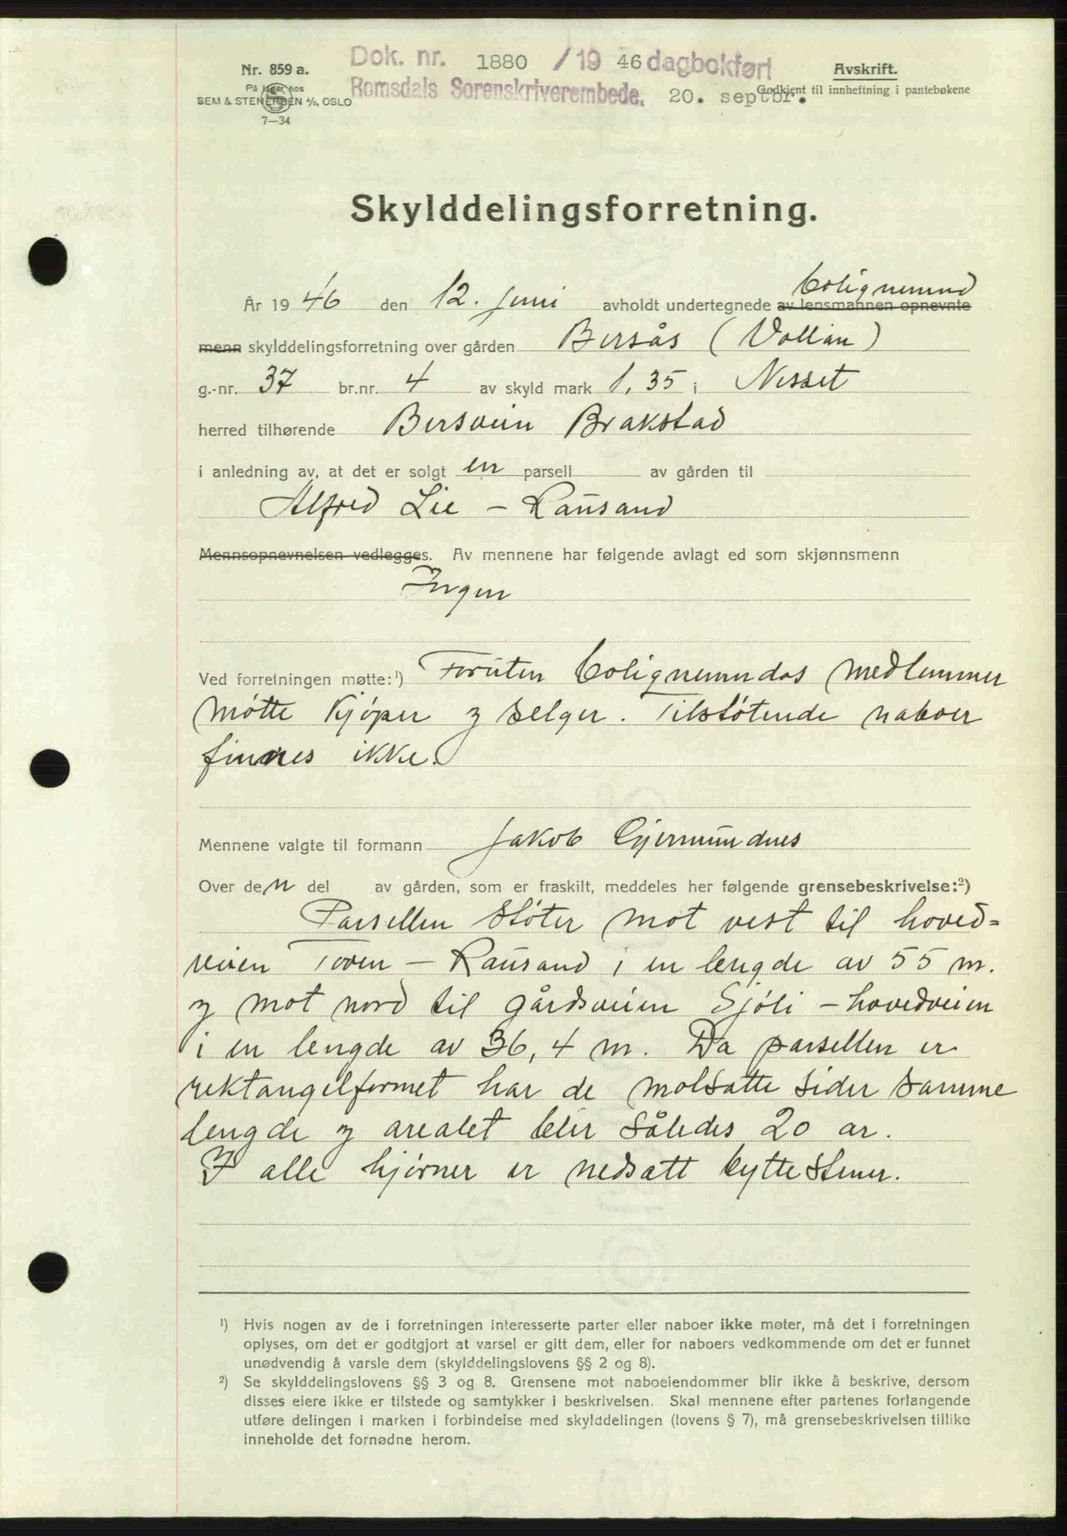 Nr. 859 a.
På lager hos
SEM & STENERSEN A/S, OSLO
7—34
Dok. nr. 1880 / 19 46 dagbokført
Romsdals Sorenskriverembede, 20. septbr.
Avskrift.
Godkjent til innheftning i pantebøkene
Skylddelingsforretning.
bolignemnd
År 19 46 den 12. juni avholdt undertegnede av lensmannen opnevnte
menn skylddelingsforretning over gården Bersås (Vollan)
g.-nr. 37 br.nr. 4 av skyld mark 1,35 i Nesset
herred tilhørende Bersvein Brakstad
i anledning av, at det er solgt en parsell av gården til
Alfred Lie – Rausand
Mennsopnevnelsen vedlegges. Av mennene har følgende avlagt ed som skjønnsmenn
Ingen
Ved forretningen møtte:¹) Foruten bolignemndas medlemmer
møtte kjøper og selger. Tilstøtende naboer
finnes ikke.
Mennene valgte til formann Jakob Gjermundnes
Over den del av gården, som er fraskilt, meddeles her følgende grensebeskrivelse:²)
Parsellen støter mot vest til hoved=
veien Toven – Rausand i en lengde av 55 m.
og mot nord til gårdsveien Sjöli – hovedveien
i en lengde av 36,4 m. Da parsellen er
rektangelformet har de motsatte sider samme
lengde og arealet blir således 20 ar.
I alle hjørner er nedsatt byttestener.
¹) Hvis nogen av de i forretningen interesserte parter eller naboer ikke møter, må det i forretningen
oplyses, om det er godtgjort at varsel er gitt dem, eller for naboers vedkommende om det er funnet
unødvendig å varsle dem (skylddelingslovens §§ 2 og 8).
²) Se skylddelingslovens §§ 3 og 8. Grensene mot naboeiendommer blir ikke å beskrive, dersom
disses eiere ikke er tilstede og samtykker i beskrivelsen. Skal mennene efter partenes forlangende
utføre delingen i marken i forbindelse med skylddelingen (lovens § 7), må grensebeskrivelsen tillike
inneholde det fornødne herom.